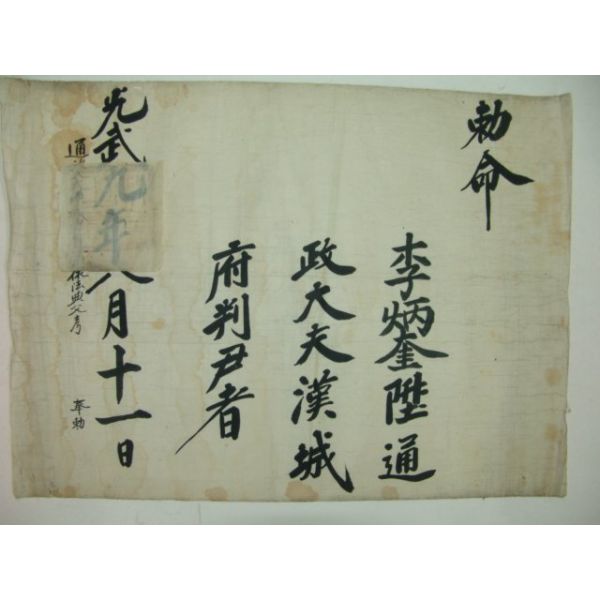 勅命
李炳奎陞通
政大夫漢城
府判尹者
光武元年八月十一日
奉勅